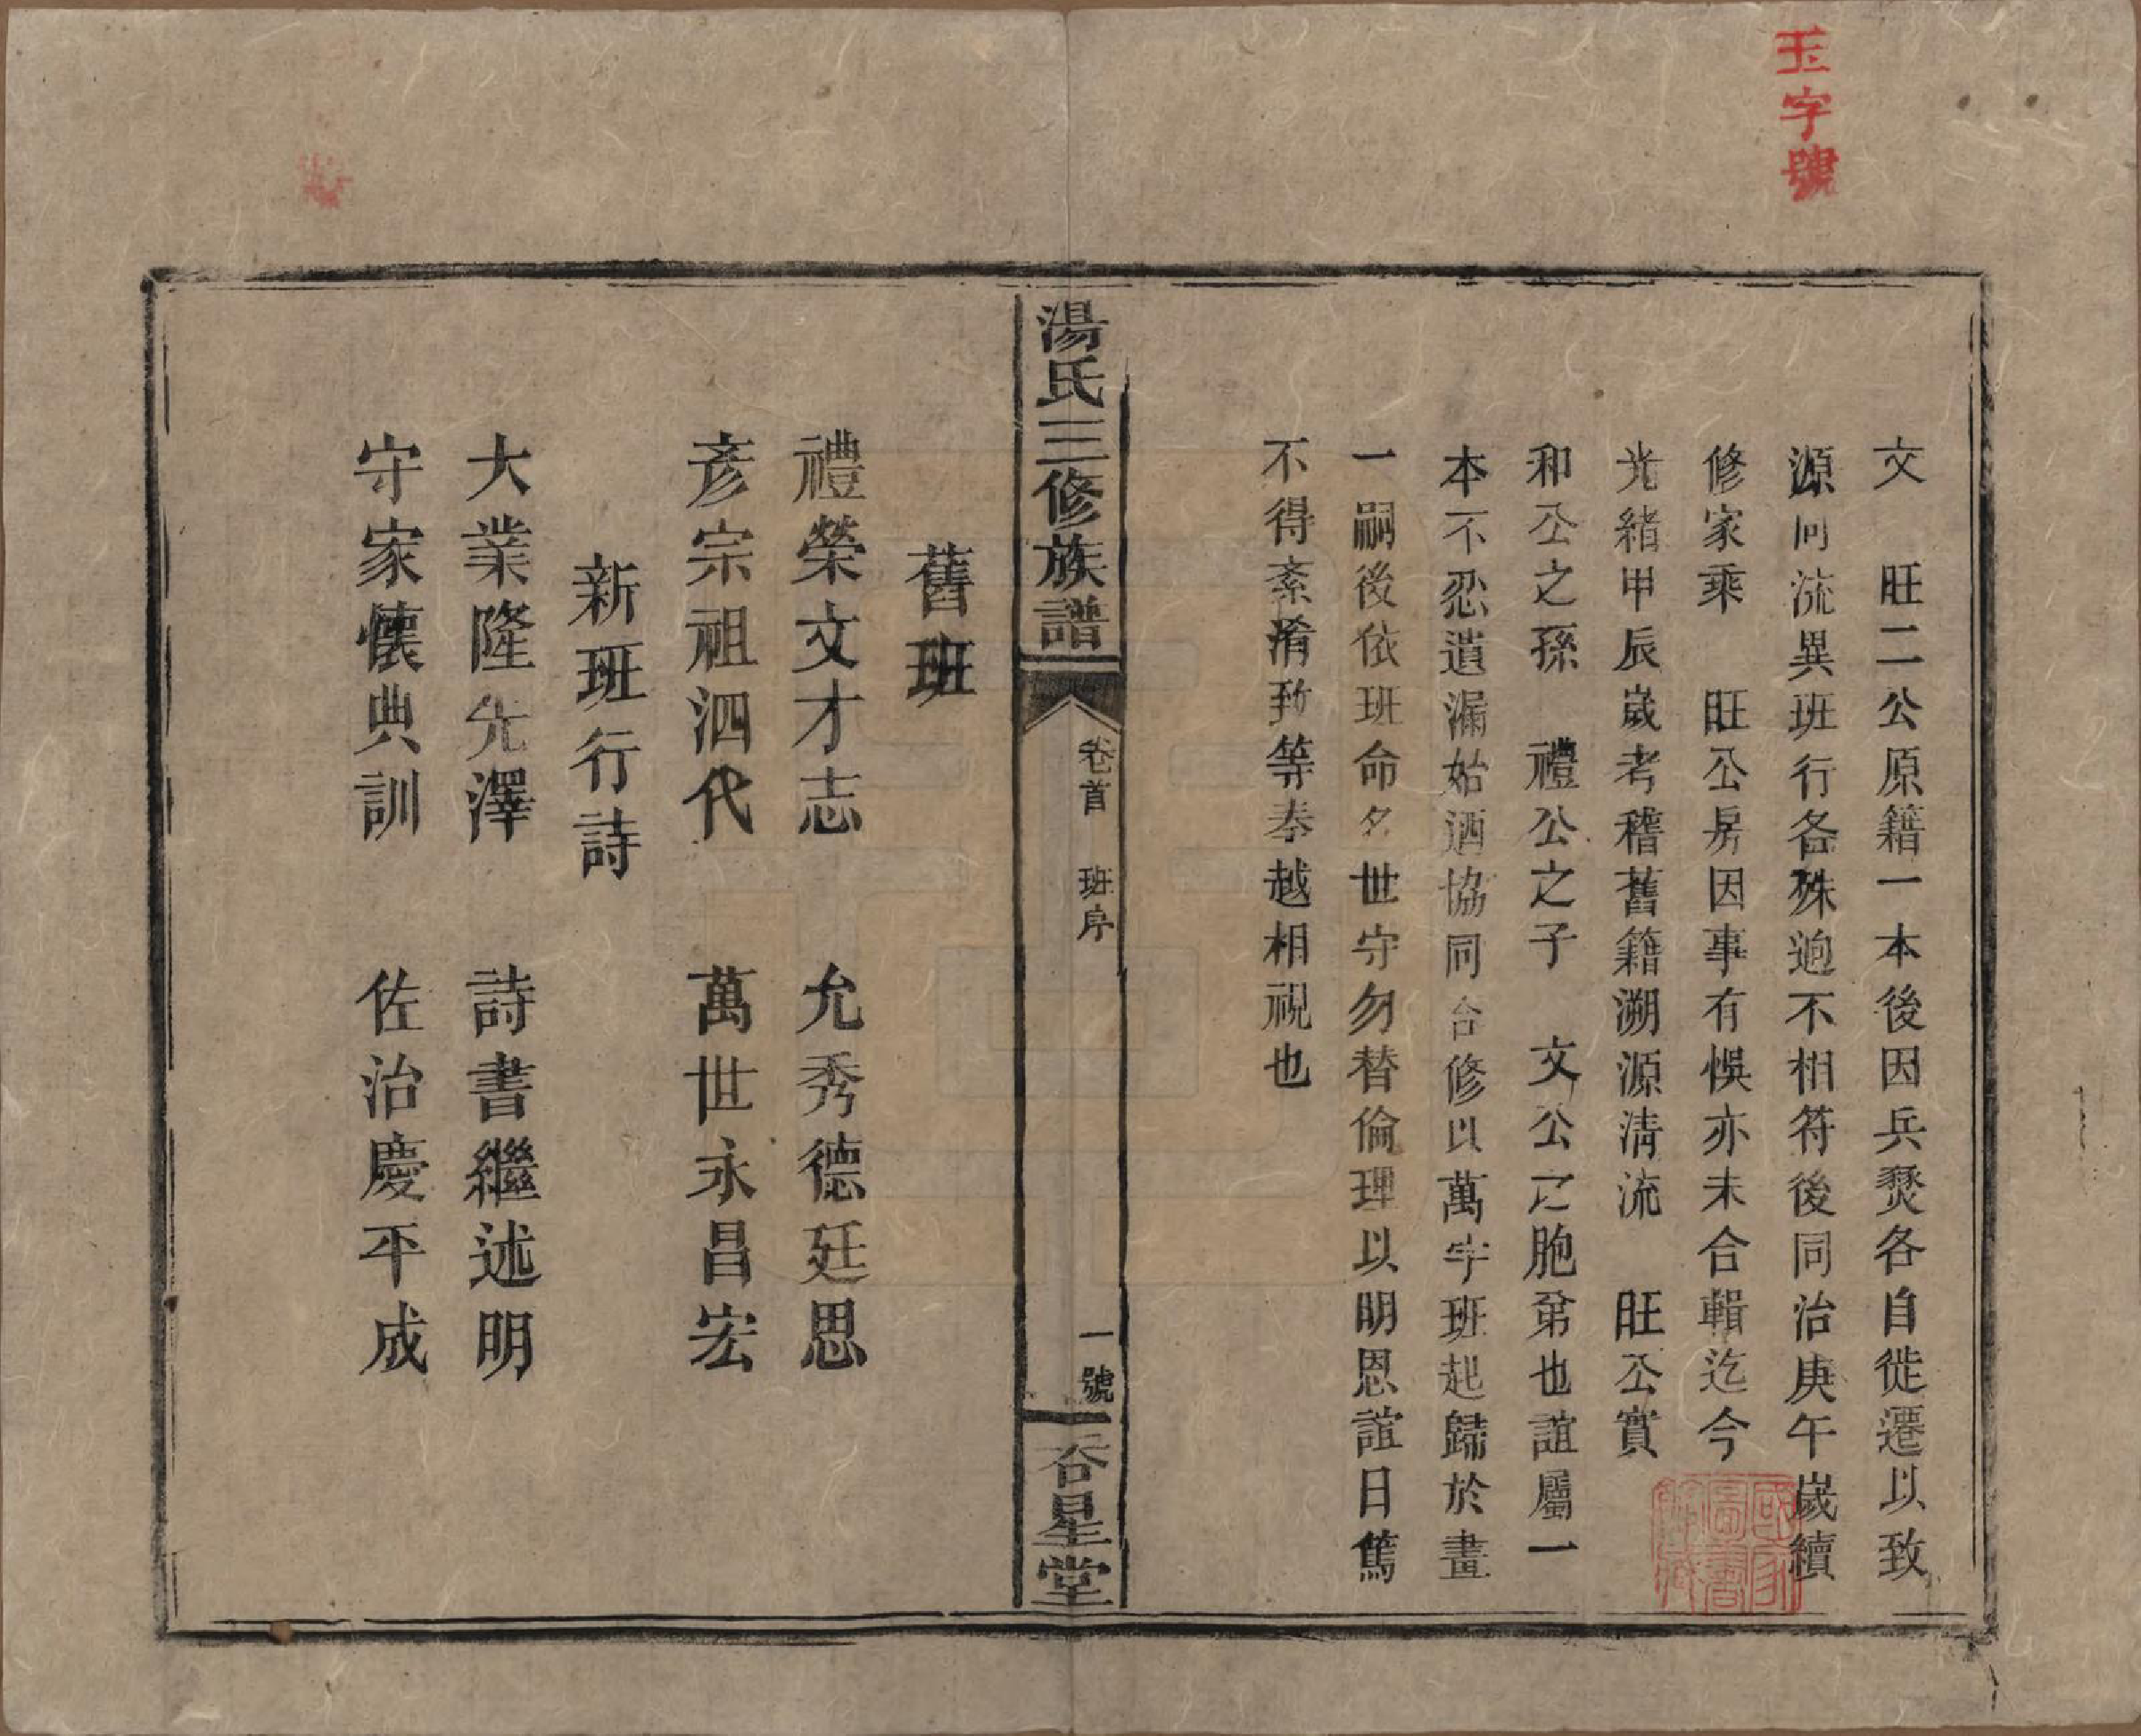 玉字號
文　旺二公原籍一本後因兵燹各自徙遷以致
源同流異班行各殊迥不相符後同治庚午歲續
修家乘　旺公房因事有悞亦未合輯迄今
光緒甲辰歲考稽舊籍溯源清流　旺公實
和公之孫　禮公之子　文公之胞弟也誼屬一
本不忍遺漏始迺協同合修以萬字班起歸於畫
一嗣後依班命名世守勿替倫理以明恩誼日篤
不得紊淆致等秦越相視也
湯氏三修族譜
卷首　班序
一號
谷星堂
舊班
禮榮文才志　允秀德廷思
彥宗祖泗代　萬世永昌宏
新班行詩
大業隆先澤　詩書繼述明
守家懷典訓　佐治慶平成
國家圖書館藏